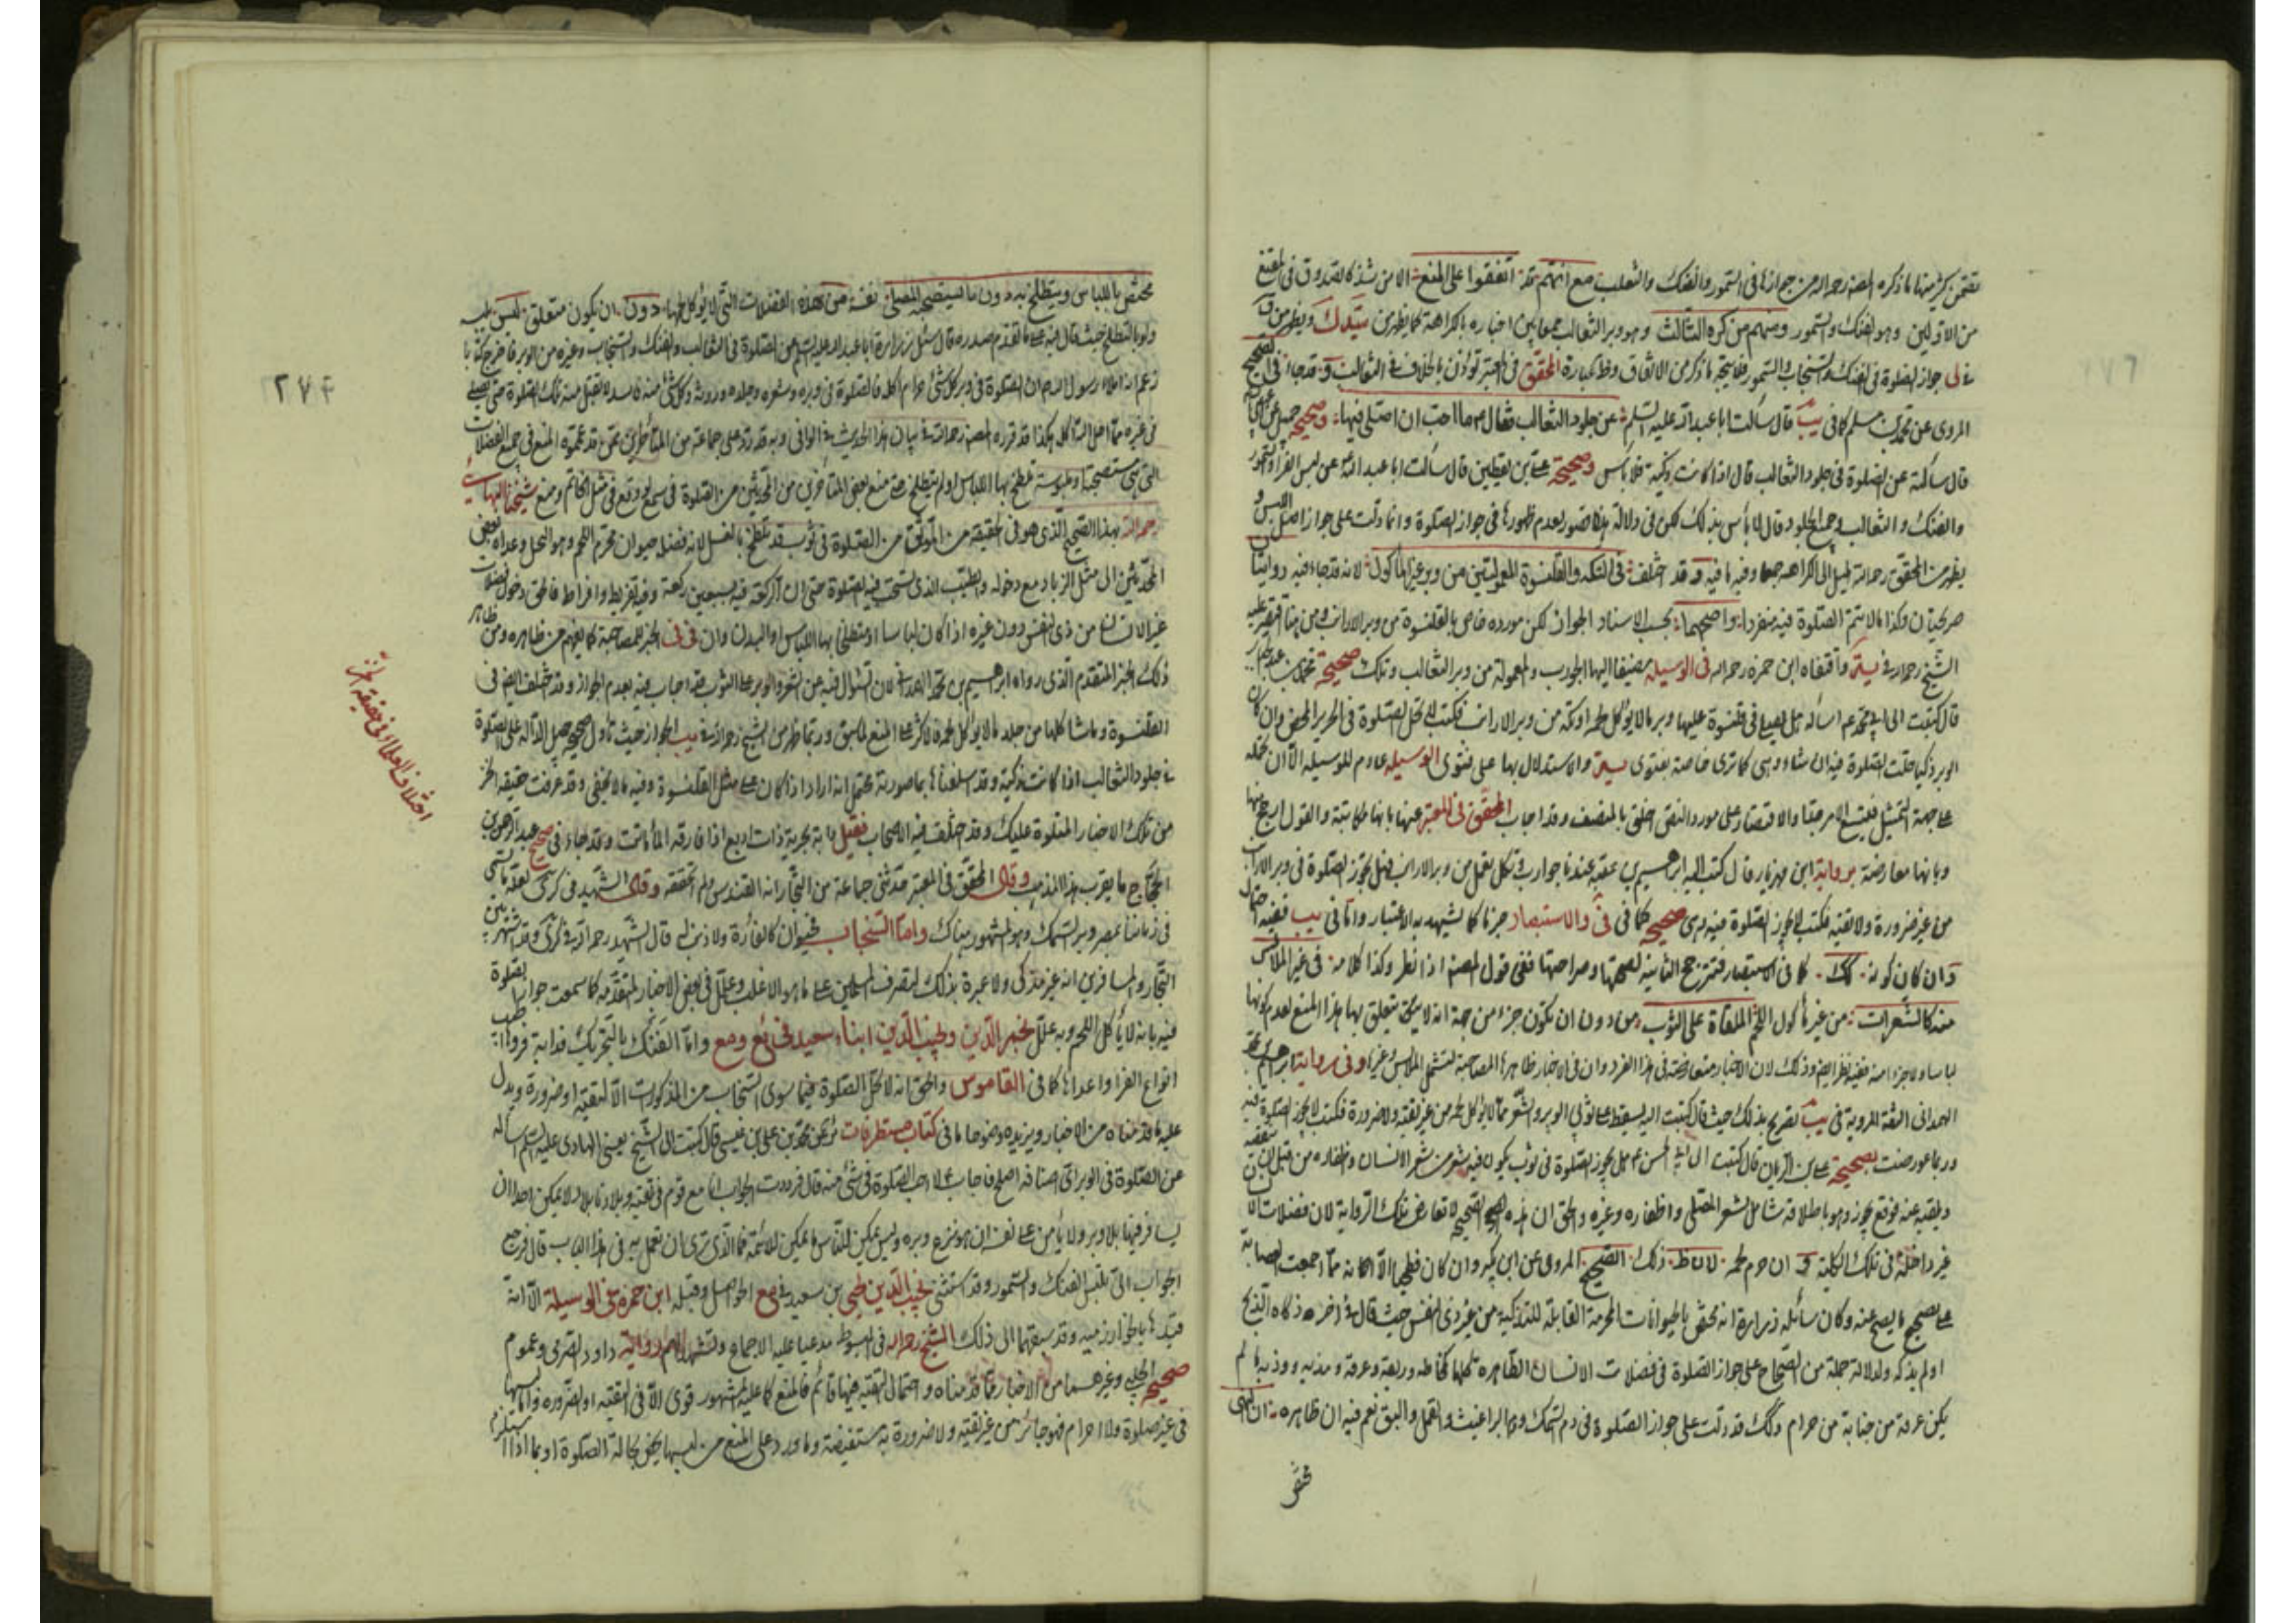 تضمن كثير منها ما ذكره المصنف رحمه الله من جوازها في السمور والفنك والثعلب مع أنهم قد اتفقوا على المنع الا من شذ كالصدوق في المقنع
من الاولين وهو الفنك والسمور ومنهم من كره الثالث وهو وبر الثعالب جمعا بين اخباره بالكراهة كما يظهر من
جواز الصلوة في الفنك والسنجاب والسمور فلا يتجه ما ذكر من الاتفاق وظ عبارة المحقق في المعتبر تؤذن بالخلاف في الثعالب وقد جاء في الصحيح
المروي عن محمد بن مسلم كما في يب قال سألت ابا عبد الله عليه السلم عن جلود الثعالب فقال ما احب ان اصلي فيها وصحيح جميل عن
قال سألته عن الصلوة في جلود الثعالب قال اذا كانت ذكية فلا بأس وصحيحة علي بن يقطين قال سألت ابا عبد الله عن لبس الفرا والسمور
والفنك والثعالب وجميع الجلود قال لا بأس بذلك لكن في دلالة هذا قصور لعدم ظهورها في جواز الصلوة وانما دلت على جواز اصل اللبس و
يظهر من المحقق رحمه الله الميل الى الكراهة جمعا وفيه ما فيه وقد اختلف في التكة والقلنسوة المعمولتين من وبر غير المأكول لانه قد جاء فيه روايتان
صريحتان وكذا ما لا يتم الصلوة فيه منفردا واصحهما بحسب الاسناد الجواز لكن مورده خاص بالقلنسوة من وبر الارانب ومن هنا اقتصر عليه
الشيخ رحمه الله في واقتفاه ابن حمزه رحمه الله في الوسيلة مضيفا اليها الجورب والمعمولة من وبر الثعالب وتلك صحيحة محمد بن عبد الجبار
قال كتبت الى ابي محمد ع اسأله هل يصلى في قلنسوة عليها وبر ما لا يؤكل لحمه او تكة من وبر الارانب فكتب لا تحل الصلوة في الحرير المحض وان كان
الوبر ذكيا حلت الصلوة فيه ان شاء الله وهي كما ترى خاصة بفتوى والاستدلال بها على فتوى الوسيلة عادم للوسيلة الا ان تحمله
على جهة التمثيل فيتسع الامر هنا والاقتصار على مورد النص اخلق بالمنصف وقد اجاب المحقق في المعتبر عنها بانها مكاتبة والقول ارجح منها
وبانها معارضة برواية ابن مهزيار قال كتب اليه ابراهيم بن عقبة عندنا جوارب وتكك تعمل من وبر الارانب فهل تجوز الصلوة في وبر الارانب
من غير ضرورة ولا تقية فكتب لا يجوز الصلوة فيه وهي صحيحة كما في في والاستبصار جزما كما يشهد به الاعتبار واما في يب ففيه احتمال
وان كان كونه كك كما في الاستبصار فتترجح الثانية لصحتها وصراحتها ففي قول المصنف اذا نظر وكذا كلامه في غير الملابس
منه كالشعرات من غير مأكول اللحم الملقاة على الثوب من دون ان يكون جزء من جهة انه لا يتعلق بها هذا المنع لعدم كونها
لباسا ولا جزءا منه ففيه نظر ايضا وذلك لان الاخبار متعارضة في هذا الفرد وان في الاخبار ظاهرها المصاحبة لتشمل الملابس وغيرها وفي رواية ابراهيم بن محمد
الهمداني الثقة المروية في يب تصريح بذلك حيث قال كتبت اليه يسقط على ثوبي الوبر والشعر مما لا يؤكل لحمه من غير تقية ولا ضرورة فكتب لا يجوز الصلوة فيه
وربما عورضت بصحيحة علي بن الريان قال كتبت الى ابي الحسن ع هل يجوز الصلوة في ثوب يكون فيه شعر من شعر الانسان واظفاره من قبل ان ينفضه
ويلقيه عنه فوقع يجوز وهو باطلاقه شامل لشعر المصلي واظفاره وغيره والحق ان هذه الصحيحة لا تعارض تلك الرواية لان فضلات الانسان
غير داخلة في تلك الكلية وان حرم لحمه لان ظ ذلك الصحيح المروي عن ابن بكير وان كان فطحيا الا انه ممن اجمعت العصابة
على تصحيح ما يصح عنه وكان سائله زرارة انه يختص بالحيوانات المحرمة القابلة للتذكية من غير ذي النفس حيث قال في اخره ذكاه الذبح
او لم يذكه ولدلالة جملة من الصحاح على جواز الصلوة في فضلات الانسان الطاهرة كلها كمخاطه وريقه وعرقه ومذيه ووذيه ما لم
يكن عرقه من جنابة من حرام وكك قد دلت على جواز الصلوة في دم السمك ودم البراغيث والقمل والبق نعم فيه ان ظاهره ان النهي
مختص
٢٧٤
مختص باللباس ويتلطخ به دون ما يستصحبه المصلي نفسه من هذه الفضلات التي لا يؤكل لحمها دون ان يكون متعلق لبس
ولو بالتلطخ حيث قال فيه على ما تقدم صدره قال سئل زرارة ابا عبد الله عليه السلم عن الصلوة في الثعالب والفنك والسنجاب وغيره من الوبر فاخرج كتابا
زعم انه املاء رسول الله ص ان الصلوة في وبر كل شئ حرام اكله فالصلوة في وبره وشعره وجلده وروثه وكل شئ منه فاسد لا تقبل منه تلك الصلوة حتى يصلي
في غيره مما احل الله اكله هكذا قد قرره المصنف رحمه الله في بيان هذا الحديث في الوافي وبه قد رد على جماعة من المتأخرين ممن قد عمموا المنع في جميع الفضلات
التي هي مستصحبة او ملبوسة تلطخ بها اللباس او لم يتلطخ حتى منع بعض المتأخرين من المحدثين من الصلوة في شمع لو وقع في مثل الخاتم ومنع شيخنا البهائي
رحمه الله بهذا الصحيح الذي هو في الحقيقة من الموثق من الصلوة في ثوب قد تلطخ بالعسل لانه فضلة حيوان محرم اللحم وهو النحل وعداه بعض
المحدثين الى مثل الزباد مع دخوله في الطيب الذي تستحب فيه الصلوة حتى ان الركعة فيه بسبعين ركعة وفيه تفريط وافراط فالحق دخول فضلات
غير الانسان من ذي النفس دون غيره اذا كان لباسا او متلطخا بها اللباس او البدن وان في الخبر للمصاحبة كما يفهم من ظاهره ومن ظاهر
ذلك الخبر المتقدم الذي رواه ابراهيم بن محمد الهمداني لان السؤال فيه عن الشعر والوبر على الثوب فقد اجاب فيه بعدم الجواز وقد اختلف ايضا في
القلنسوة وما شاكلها من جلد ما لا يؤكل لحمه فالاكثر على المنع لما سبق وربما ظهر من الشيخ رحمه الله في يب الجواز حيث تأول صحيح جميل الدالة على الصلوة
في جلود الثعالب اذا كانت ذكية وقد اسلفناها بما صورته يحتمل انه اراد اذا كان على مثل القلنسوة وفيه ما لا يخفى وقد عرفت حقيقة الخز
من تلك الاخبار المتلوة عليك وقد اختلف فيه الاصحاب فقيل دابة بحرية ذات اربع اذا فارقه الماء ماتت وقد جاء في صحيح عبد الرحمن بن
الحجاج ما يقرب هذا المذهب وقال المحقق في المعتبر حدثني جماعة من التجار انه القندس ولم اتحققه وقال الشهيد في كرى لعله ما يسمى
في زماننا بمصر وبر السمك وهو المشهور هناك واما السنجاب فحيوان كالفأرة ولا ذنب له قال الشهيد رحمه الله في كرى وقد اشتهر بين
التجار والمسافرين انه غير مذكى ولا عبرة بذلك لتصرف المسلمين على ما هو الاغلب وعلل في بعض الاخبار المتقدمة كما سمعت جواز الصلوة
فيه بانه لا يأكل اللحم وبه علل نجم الدين ونجيب الدين ابناء سعيد في ئع ومع واما الفنك بالتحريك فدابة فروها اطيب
انواع الفرا واعدلها كما في القاموس والحق انه لا تحل الصلوة فيما سوى السنجاب من المذكورات الا لتقية او ضرورة ويدل
عليه ما قدمناه من الاخبار ويزيده وضوحا ما في كتاب مستطرفات ئر عن محمد بن علي بن عيسى قال كتبت الى الشيخ يعني الهادي عليه السلم اسأله
عن الصلوة في الوبر اي اصنافه اصلح فاجاب ع لا احب الصلوة في شئ منه قال فرددت الجواب انا مع قوم في تقية وبلادنا بلاد لا يمكن احدا ان
يسافر فيها بلا وبر ولا يأمن على نفسه ان هو نزع وبره وليس يمكن للناس ما يمكن للائمة فما الذي ترى ان نعمل به في هذا الباب قال فرجع
الجواب الي تلبس الفنك والسمور وقد استثنى نجيب الدين يحيى بن سعيد في مع الحواصل وقبله ابن حمزه في الوسيلة الا انه
قيدها بالخوارزمية وقد سبقهما الى ذلك الشيخ رحمه الله في المبسوط مدعيا عليه الاجماع وتشهد لهم رواية داود الصرمي وعموم
صحيح الحلبي وغيرهما من الاخبار مما قدمناه واحتمال التقية فيها قائم فالمنع كما عليه المشهور قوى الا في التقية او الضرورة واما لبسها
في غير صلوة ولا احرام فهو جائز من غير تقية ولا ضرورة به مستفيضة وما ورد على المنع من لبسها يختص بحالة الصلوة او بما اذا استلزم
اختلاف العلماء في حقيقة الخز